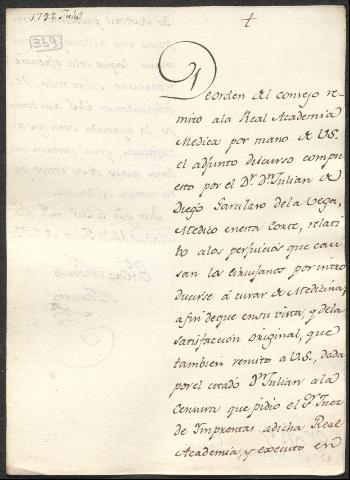 1792 Julio
359
+
De orden del consejo re-
mito ala Real Academia
Medica por mano de V.S.
el adjunto discurso compu-
esto por el Dr. Dn Julian de
Diego Garcilaso dela Vega,
Medico enesta Corte, relati-
bo alos perjuicios que cau-
san los cirujanos por intro-
ducirse á curar de Medicina,
afin deque en su vista, y dela
satisfaccion original, que
tambien remito a V.S., dada
por el citado Dn Julian ala
Censura que pidio el Sr. Juez
de Imprentas adicha Real
Academia, y executó en